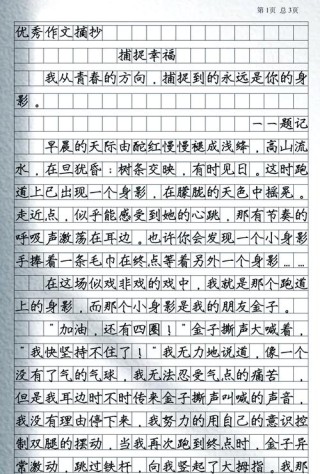 第1页 总3页
优秀作文摘抄
捕捉幸福
我从青春的方向，捕捉到的永远是你的身
影。
——题记
早晨的天际由酡红慢慢褪成浅绛，高山流
水，在旦犹昏：树条交映，有时见日。这时跑
道上已出现一个身影，在朦胧的天色中摇晃。
走近点，似乎能感受到她的心跳，那有节奏的
呼吸声激荡在耳边。也许你会发现一个小身影
手捧着一条毛巾在终点等着另外一个身影……
在这场似戏非戏的戏中，我就是那个跑道
上的身影，而那个小身影是我的朋友金子。
“加油，还有四圈！”金子撕声大喊着，
“我快坚持不住了！”我无力地说道，像一个
没有了气的气球，我无法忍受气点的痛苦，
但是我耳边时不时传来金子撕声叫喊的声音，
我没有理由停下来，我努力的用自己的意识控
制双腿的摆动，当我再次跑到终点时，金子异
常激动，跳过铁杆，向我竖起了大拇指。我那